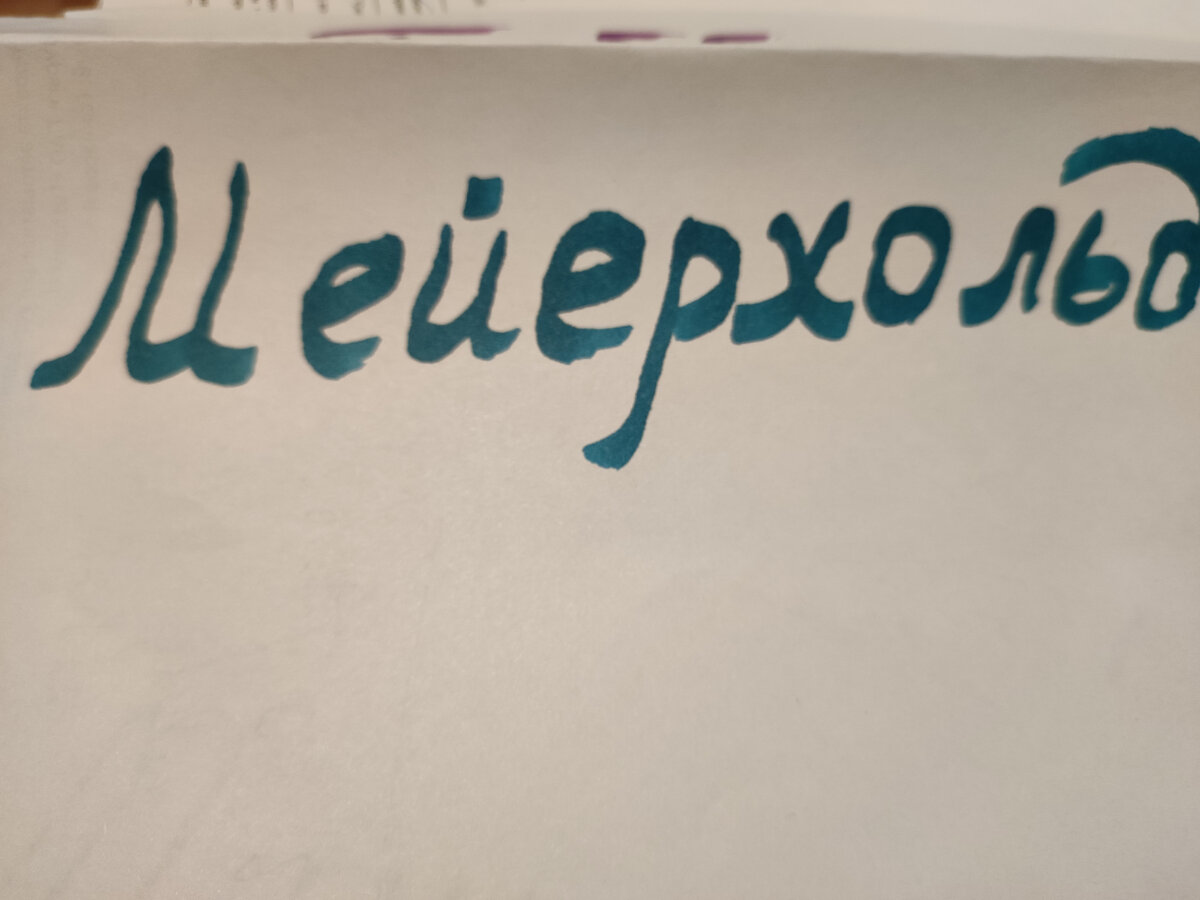 Мейерхольд